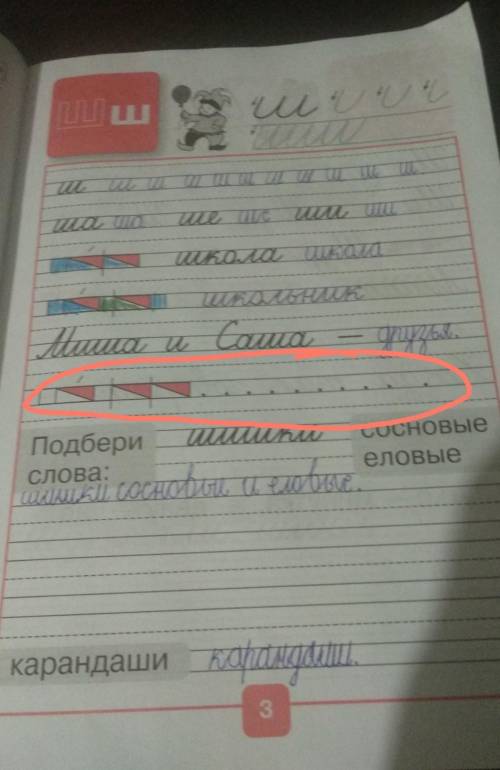 Ш ш
ш и и и
шии
ш ш ш ш ш ш ш ш ш ш ш
ша ша ше ше ши ши
школа школа
школьник
Миша и Саша — друзья.
Подбери слова:
шишки
сосновые
еловые
шишки сосновые и еловые.
карандаши карандаши.
3